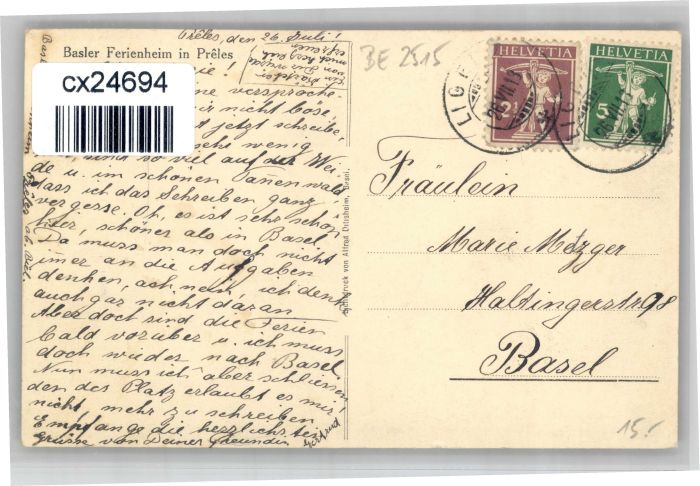 Prêles, den 26. Juli!
Basler Ferienheim in Prêles
BE 2515
cx24694
HELVETIA
2½
HELVETIA
5
LIG
26.VII.13
LIG
26.VII.13
versproche-
nicht böse,
jetzt schreibe.
sehr wenig
sind so viel auf der Wei-
de u. im schönen Tannenwald,
dass ich das Schreiben ganz
vergesse. Oh, es ist sehr schön
hier, schöner als in Basel.
Da muss man doch nicht
imer an die Aufgaben
denken, ach nein, ich denk
auch gar nicht daran.
Aber doch sind die Ferien
bald vorüber u. ich muss
doch wieder nach Basel.
Nun muss ich aber schliessen
den der Platz erlaubt es mir
nicht mehr zu schreiben.
Empfange die herzlichsten
Grüsse von Deiner Freundin
Gertrud
von Alfred Ditisheim, Basel.
Fräulein
Marie Metzger
Haltingerstr 98
Basel
15.-